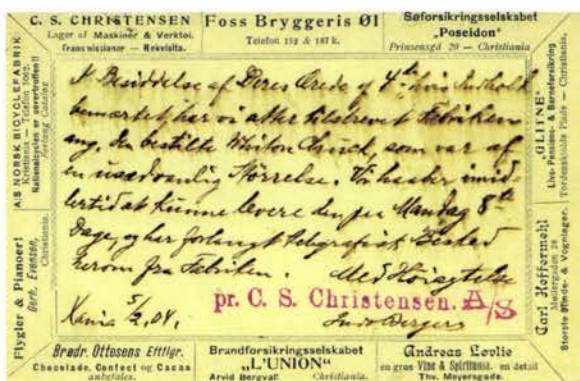 C. S. CHRISTENSEN
Lager af Maskiner & Verktøi.
Transmissioner — Rekvisita.
Foss Bryggeris Øl
Telefon 152 & 187 k.
Søforsikringsselskabet
"Poseidon"
Prinsensgd 20 — Christiania
A/S NORSK BICYCLEFABRIK
Kristiania — Telefon 5062.
Nationalcyclen er uovertruffen!!
Forlang Catalog
"GLITNE"
Livs- Pensions- & Barneforsikring
Tordenskiolds Plads — Christiania.
I Besiddelse af Deres Ærede af 4de hvis Indhold
bemærket, har vi atter tilskrevet Fabriken
ang. den bestilte Chuck, som var af
en usædvanlig Størrelse. Vi haaber imid-
lertid at kunne levere den paa Mandag 8de
Dage, og har forlangt telegrafisk Besked
herom fra Fabriken. Med Høiagtelse
pr. C. S. Christensen. A/S
Xania 5/2.04.
Flygler & Pianoer!
Berh. Evensen,
Christiania.
Carl Heffermehl
Møllergaden 28
Største Blinde- & Vognlager.
Brødr. Ottosens Eftflgr.
Chocolade, Confect og Cacao
anbefales.
Brandforsikringsselskabet
„L'UNION"
Arvid Bergvall Christiania.
Andreas Løvlie
en gros Vine & Spirituosa. en detail
Thv. Meyersgade.